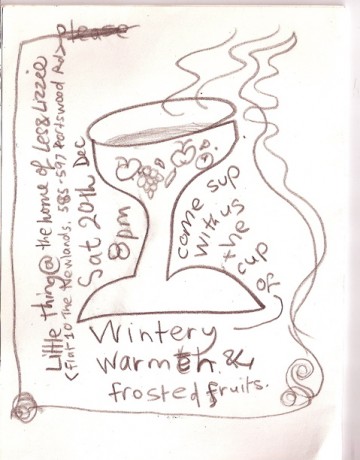 Little thing @ the home of Les & Lizzie
(flat 10 The Newlands, 585-597 Portswood Rd)
Sat 20th Dec
8pm
come sup
with us
the
cup
of
Wintery
warmth &
frosted fruits.